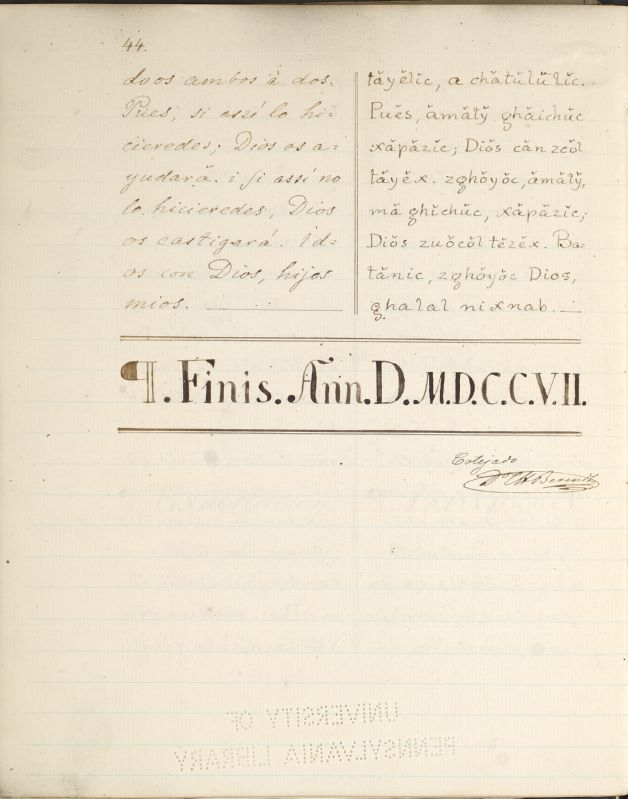 44.
doos ambos à dos.
Pues, si assí lo hi-
cieredes; Dios os a=
yudará. i si assí no
lo hicieredes, Dios
os castigará. Id=
os con Dios, hijos
mios.
tăyĕlĭc, a chătŭlŭlĭc.
Puĕs, ămălў ghăichŭc
xăpăzĭc; Diŏs căn zcŏl
tăyĕx. zghŏyŏc, ămălў,
mă ghĭchŭc, xăpăzĭc;
Diŏs zuŏcŏl tĕzĕx. Ba-
tănic, zghŏyŏc Dios,
ghalal nixnab.
¶. Finis. Ann. D. M.D.C.C.V.II.
Cotejado
Dr CHBerendt
UNIVERSITY OF
PENNSYLVANIA LIBRARY